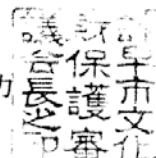 早市文化
財保護審
議会長之印